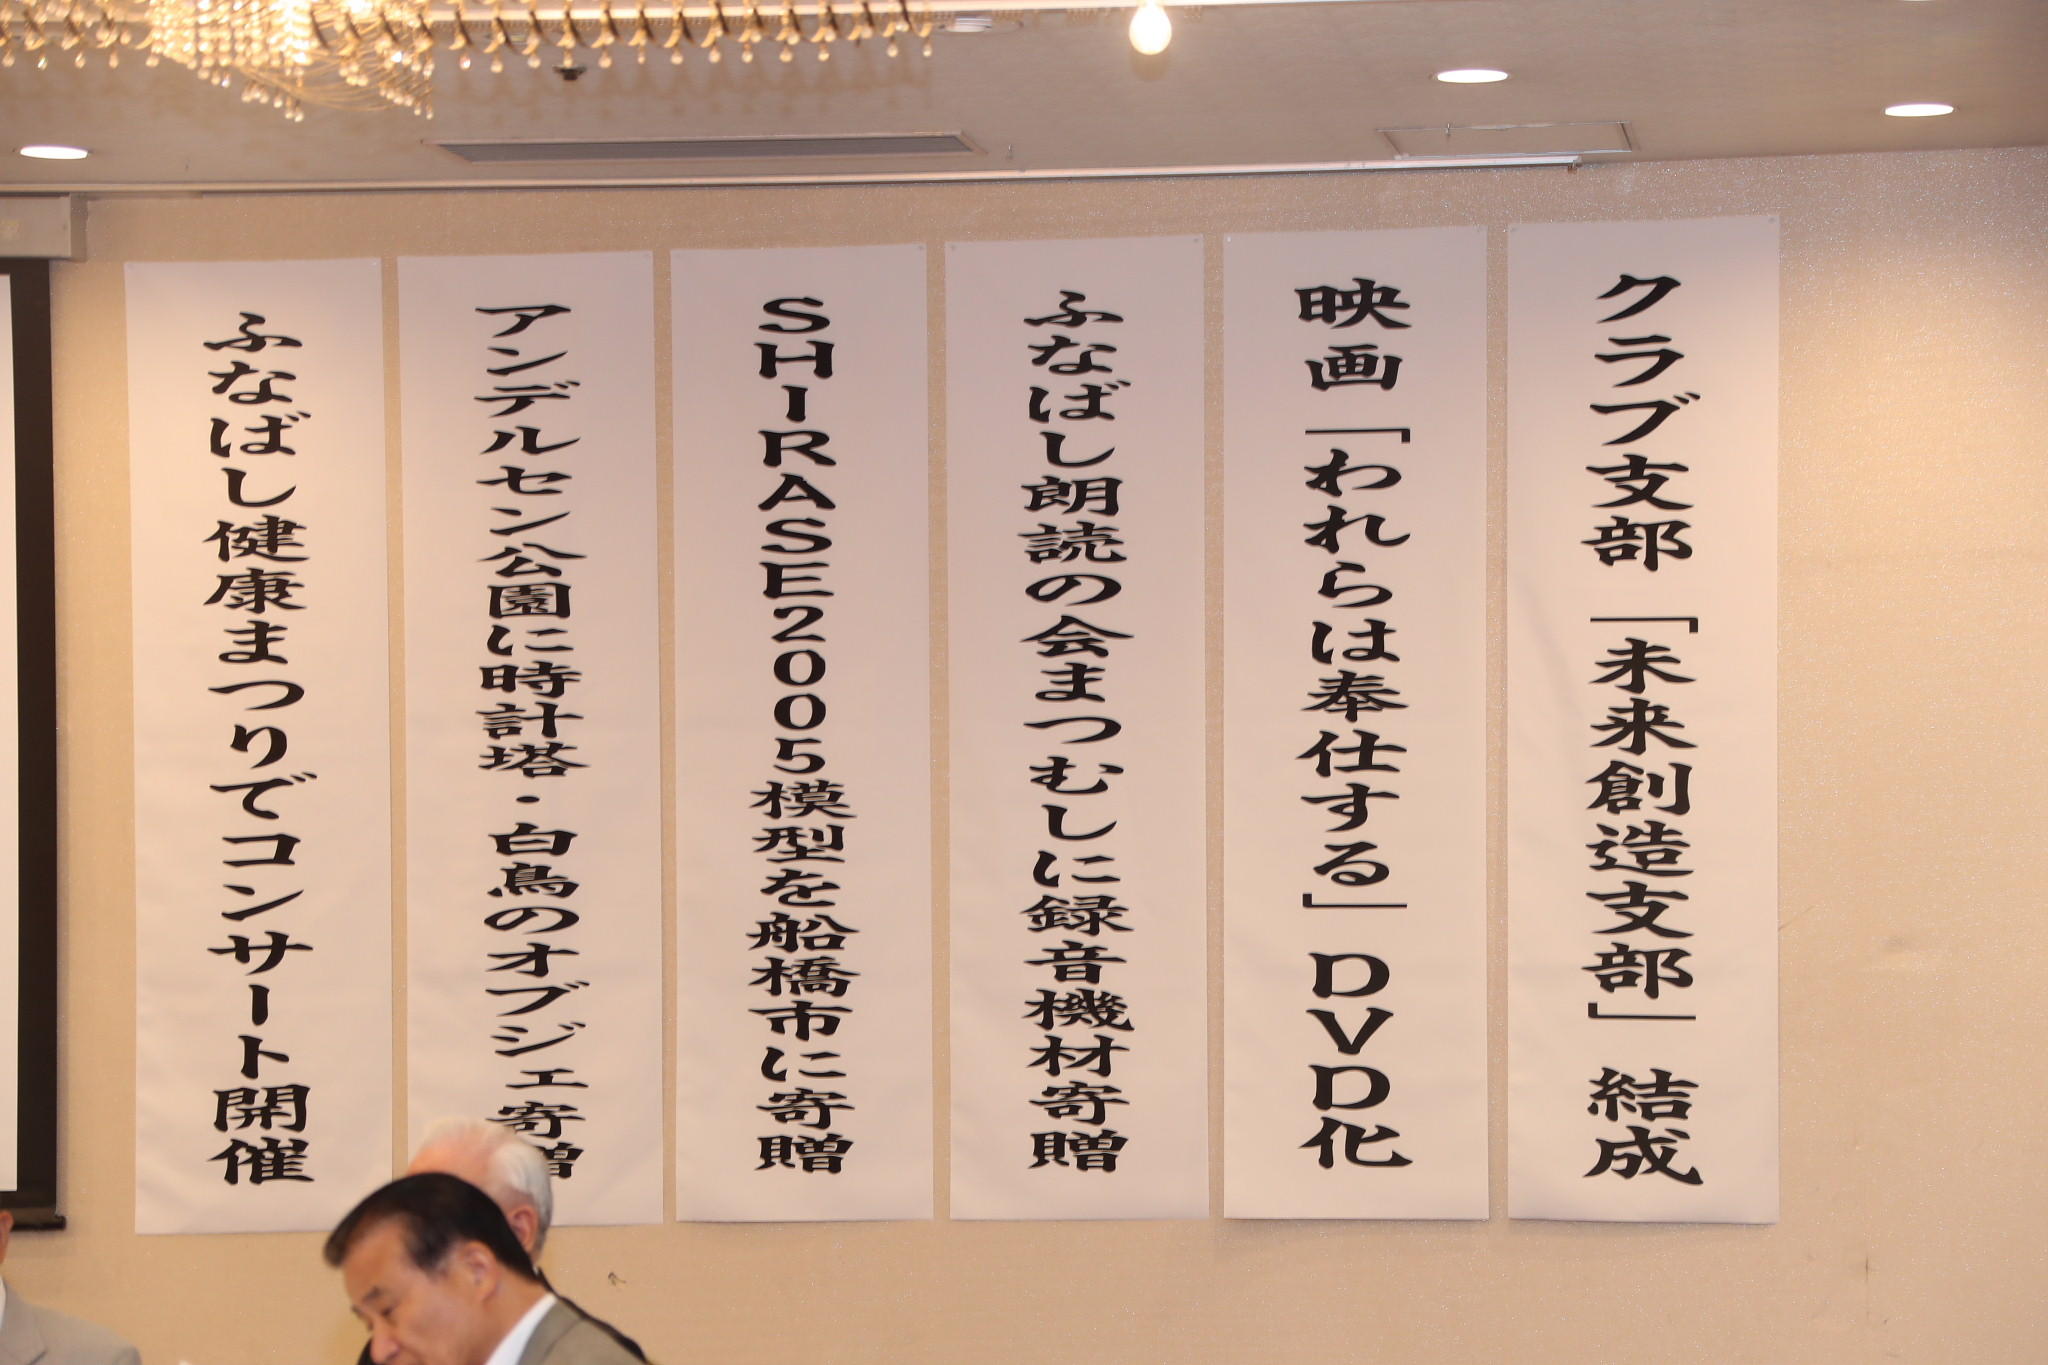 クラブ支部「未来創造支部」結成
映画「われらは奉仕する」DVD化
ふなばし朗読の会まつむしに録音機材寄贈
SHIRASE2005模型を船橋市に寄贈
アンデルセン公園に時計塔・白鳥のオブジェ寄贈
ふなばし健康まつりでコンサート開催